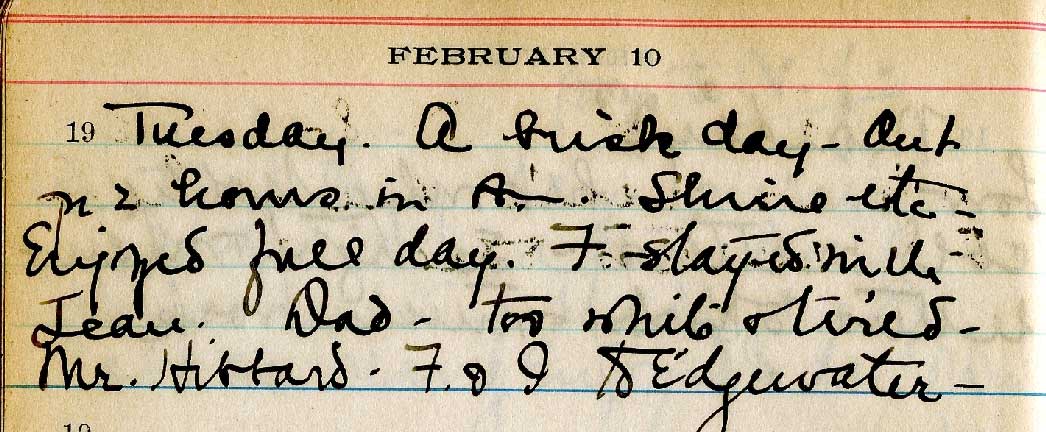 FEBRUARY 10
19 Tuesday. A brisk day - Out
2 hours in A.M. Shine etc -
Enjoyed full day. F stayed with
Jean. Dad - too white & tired -
Mr. Hibbard. F & I to Edgewater -